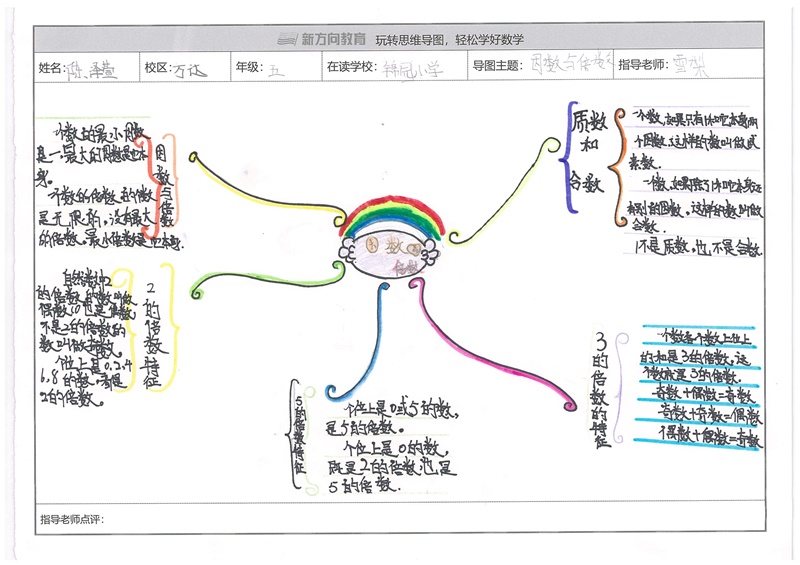 新方向教育 玩转思维导图，轻松学好数学
姓名： 校区：万达 年级：五 在读学校：锦冠小学 导图主题：因数与倍数 指导老师：雪梨
因数与倍数
一个数的最小因数
是一，最大的因数是它本
身。
一个数的倍数的个数
是无限的，没有最大
的倍数。最小倍数是它本身。
2的倍数特征
自然数中2
的倍数的数叫做
偶数（0也是偶数
不是2的倍数的
数叫做奇数。
个位上是0,2,4
6,8的数，都是
2的倍数。
因数
倍数
质数
和
合数
一个数，如果只有1和它本身两
个因数，这样的数叫做质
素数。
一个数，如果除了1和它本身还
有别的因数，这样的数叫做
合数。
1不是质数，也不是合数
5的倍数特征
个位上是0或5的数，
是5的倍数。
个位上是0的数，
既是2的倍数，也是
5的倍数．
3的倍数的特征
一个数各个数上位上
的和是3的倍数，这
个数就是3的倍数．
奇数+偶数=奇数
奇数+奇数=偶数
偶数+偶数=奇数
指导老师点评：